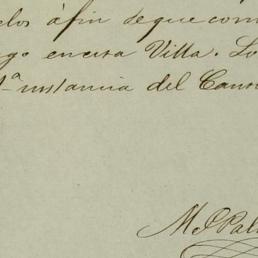 elos áfin de que com
go en esta Villa. Lo
1ª instancia del Cant
M J Pal